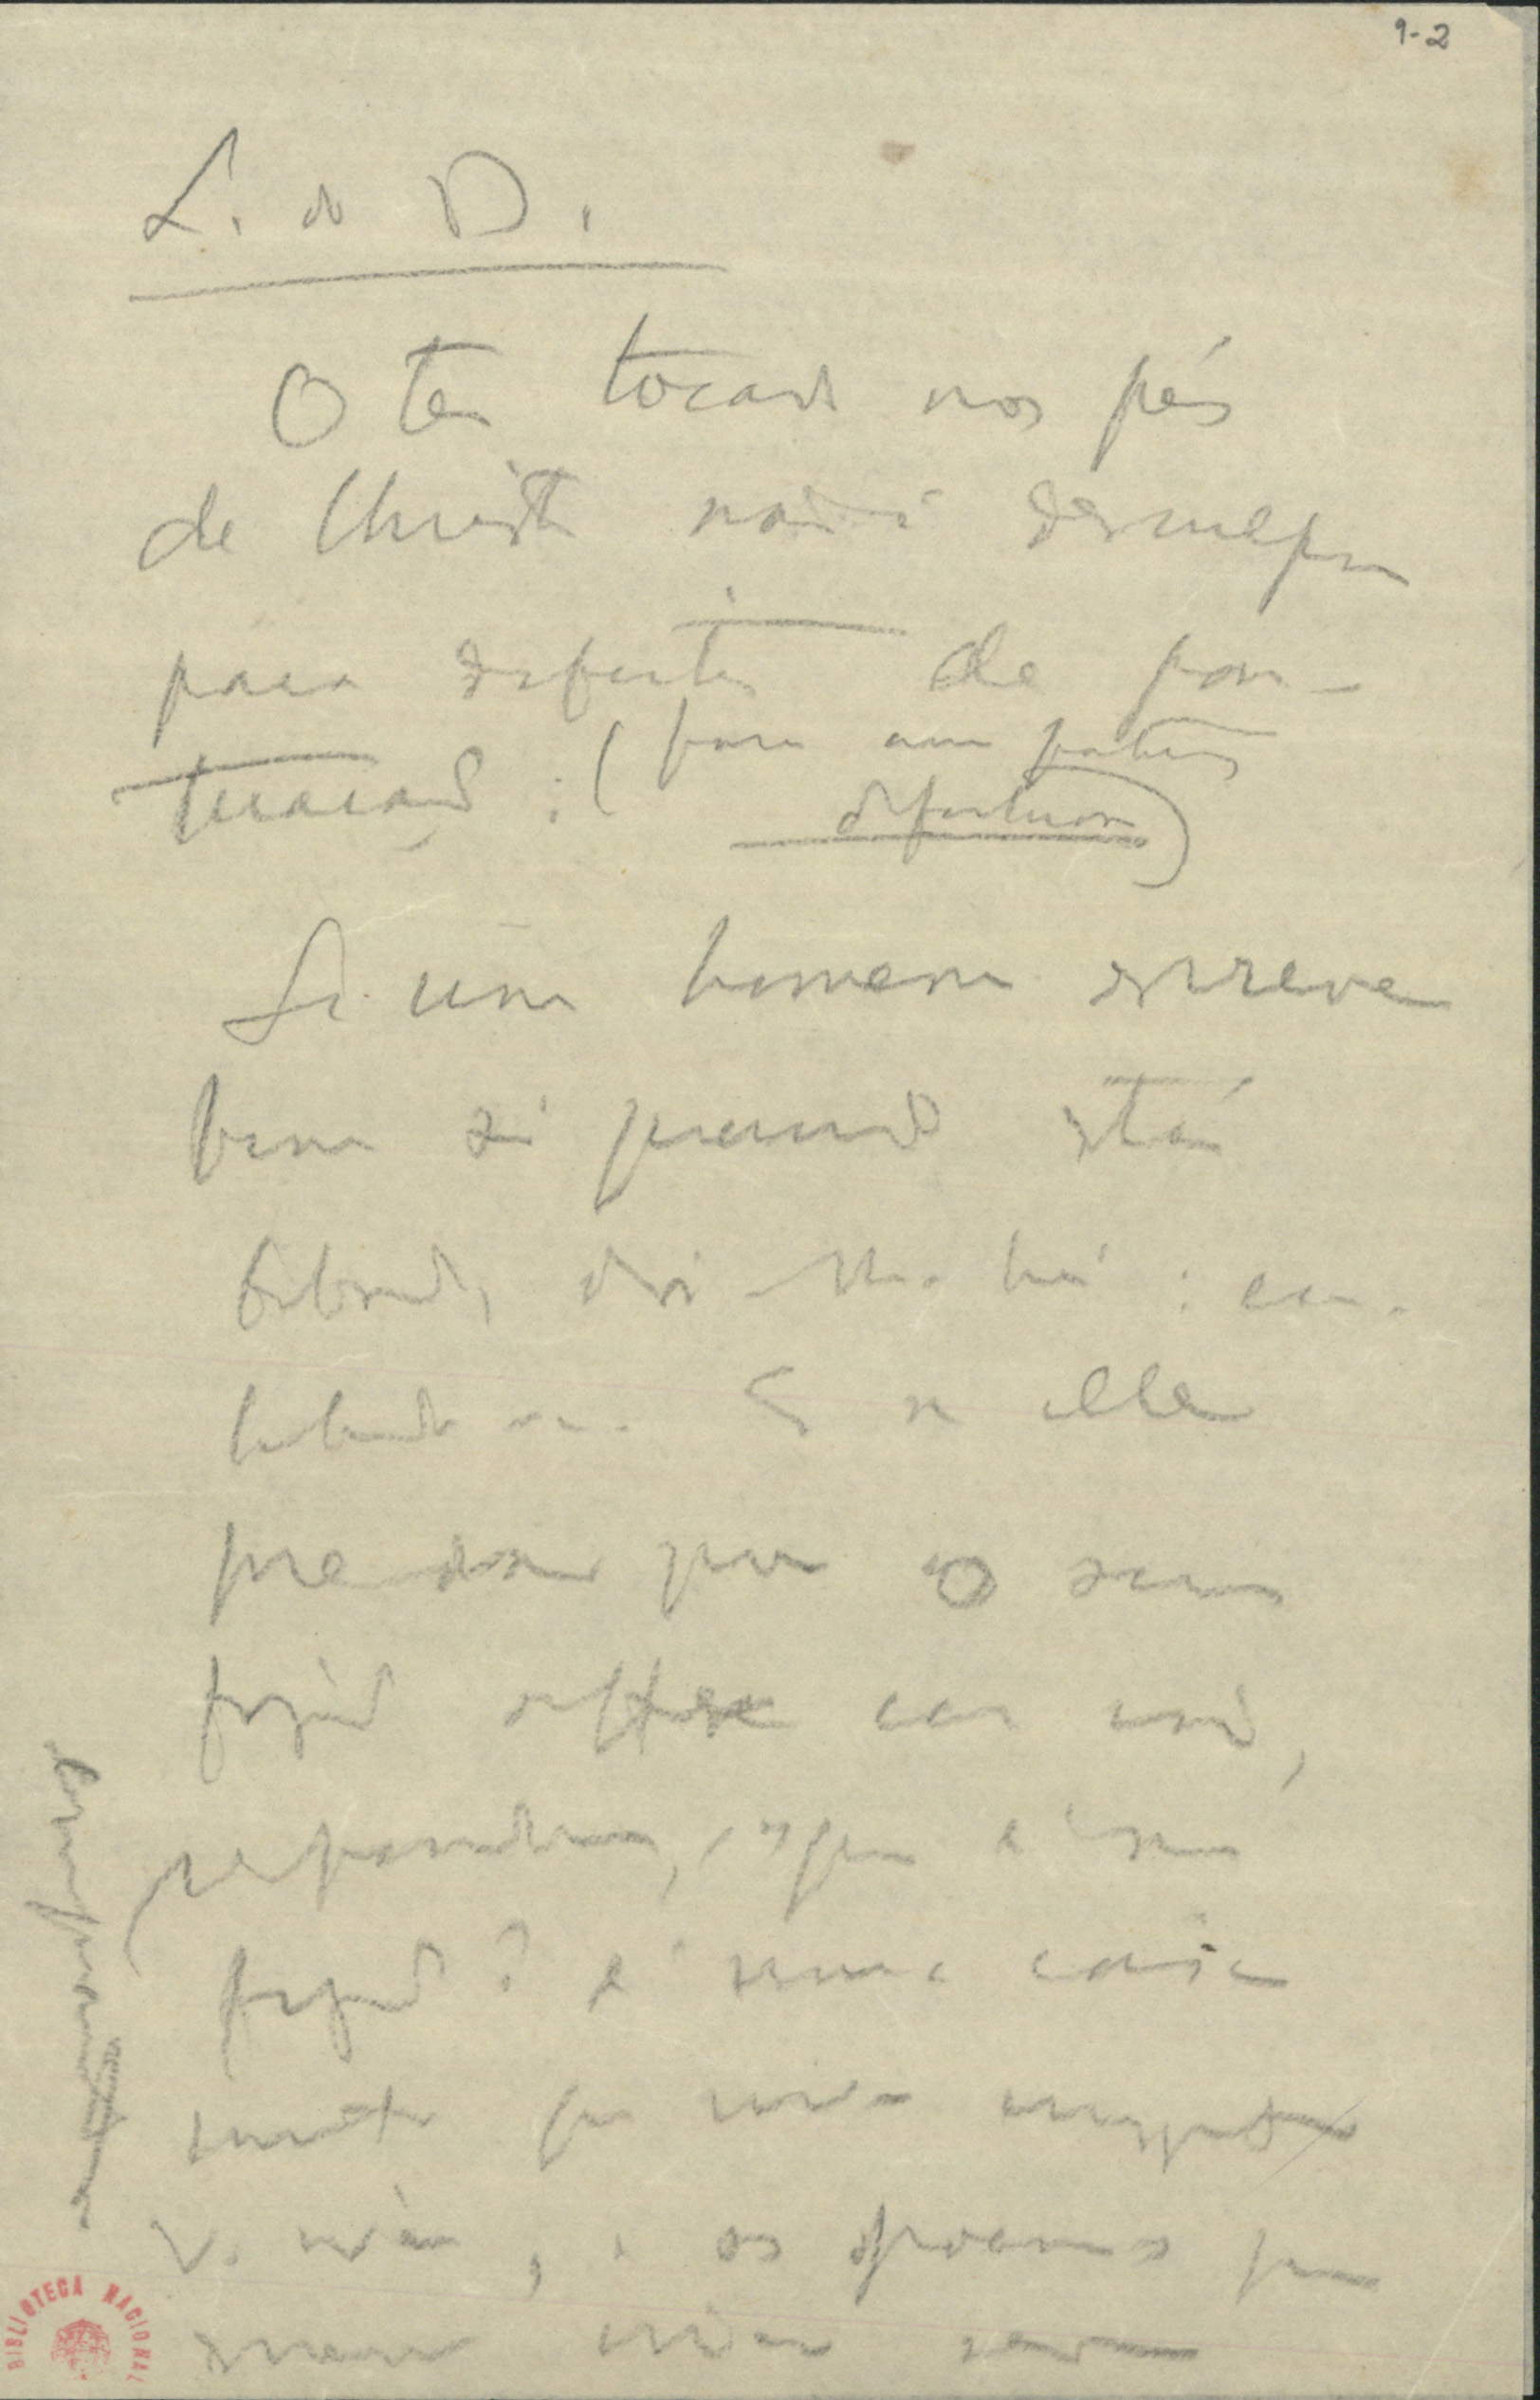 9-2
L. do D.
O ter tocado nos pés
de Christo não é desculpa
para defeitos de pon-
tuação. (
Se um homem escreve
bem só quando está
bebado, dir-lhe-hei: em-
bebede-se. E se elle
me disser que o seu
figado soffre com isso,
respondo: o que é o seu
figado? é uma coisa
morta que vive emquanto
v. vive, e os poemas que
escrever vivem sem
BIBLIOTECA NACIONAL